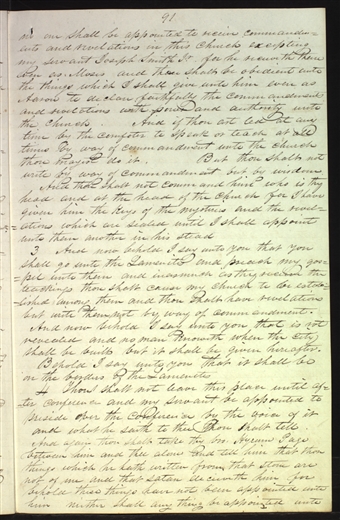 91.
no one shall be appointed to receive command
ents and revelations in this Church excepting
my servant Joseph Smith Jr for he receiveth them
even as Moses and thou shalt be obedient unto
the things which I shall give unto him even as
Aaron to declare faithfully the commandments
and revelations with power and authority unto
the Church. And if thou art led at any
time by the Comforter to speak or teach or at all
times by way of commandment unto the church
thou mayest do it. But thou shalt not
write by way of commandment but by wisdom
And thou shalt not command him who is thy
head and at the head of the Church for I have
given him the keys of the mysteries and the revel
ations which are sealed until I shall appoint
unto them another in his stead
3 And now behold I say unto you that you
shall go unto the Lamanites and preach my gos
pel unto them and inasmuch as they receive thy
teachings thou shalt cause my church to be estab
lished among them and thou shalt have revelations
but write them not by way of commandment.
And now behold I say unto you that is not
revealed and no man knoweth where the city
shall be built but it shall be given hereafter.
Behold I say unto you that it shall be
on the borders by the Lamanites
4 Thou shalt not leave this place until af
ter conference and my servant be appointed to
preside over the conference by the voice of it
and what he saith to thee thou shalt tell.
And again thou shalt take thy bro. Hyrum Page
between him and thee alone and tell him that those
things which he hath written from that stone are
not of me and that satan deceiveth him for
behold these things have not been appointed unto
him neither shall any thing be appointed unto